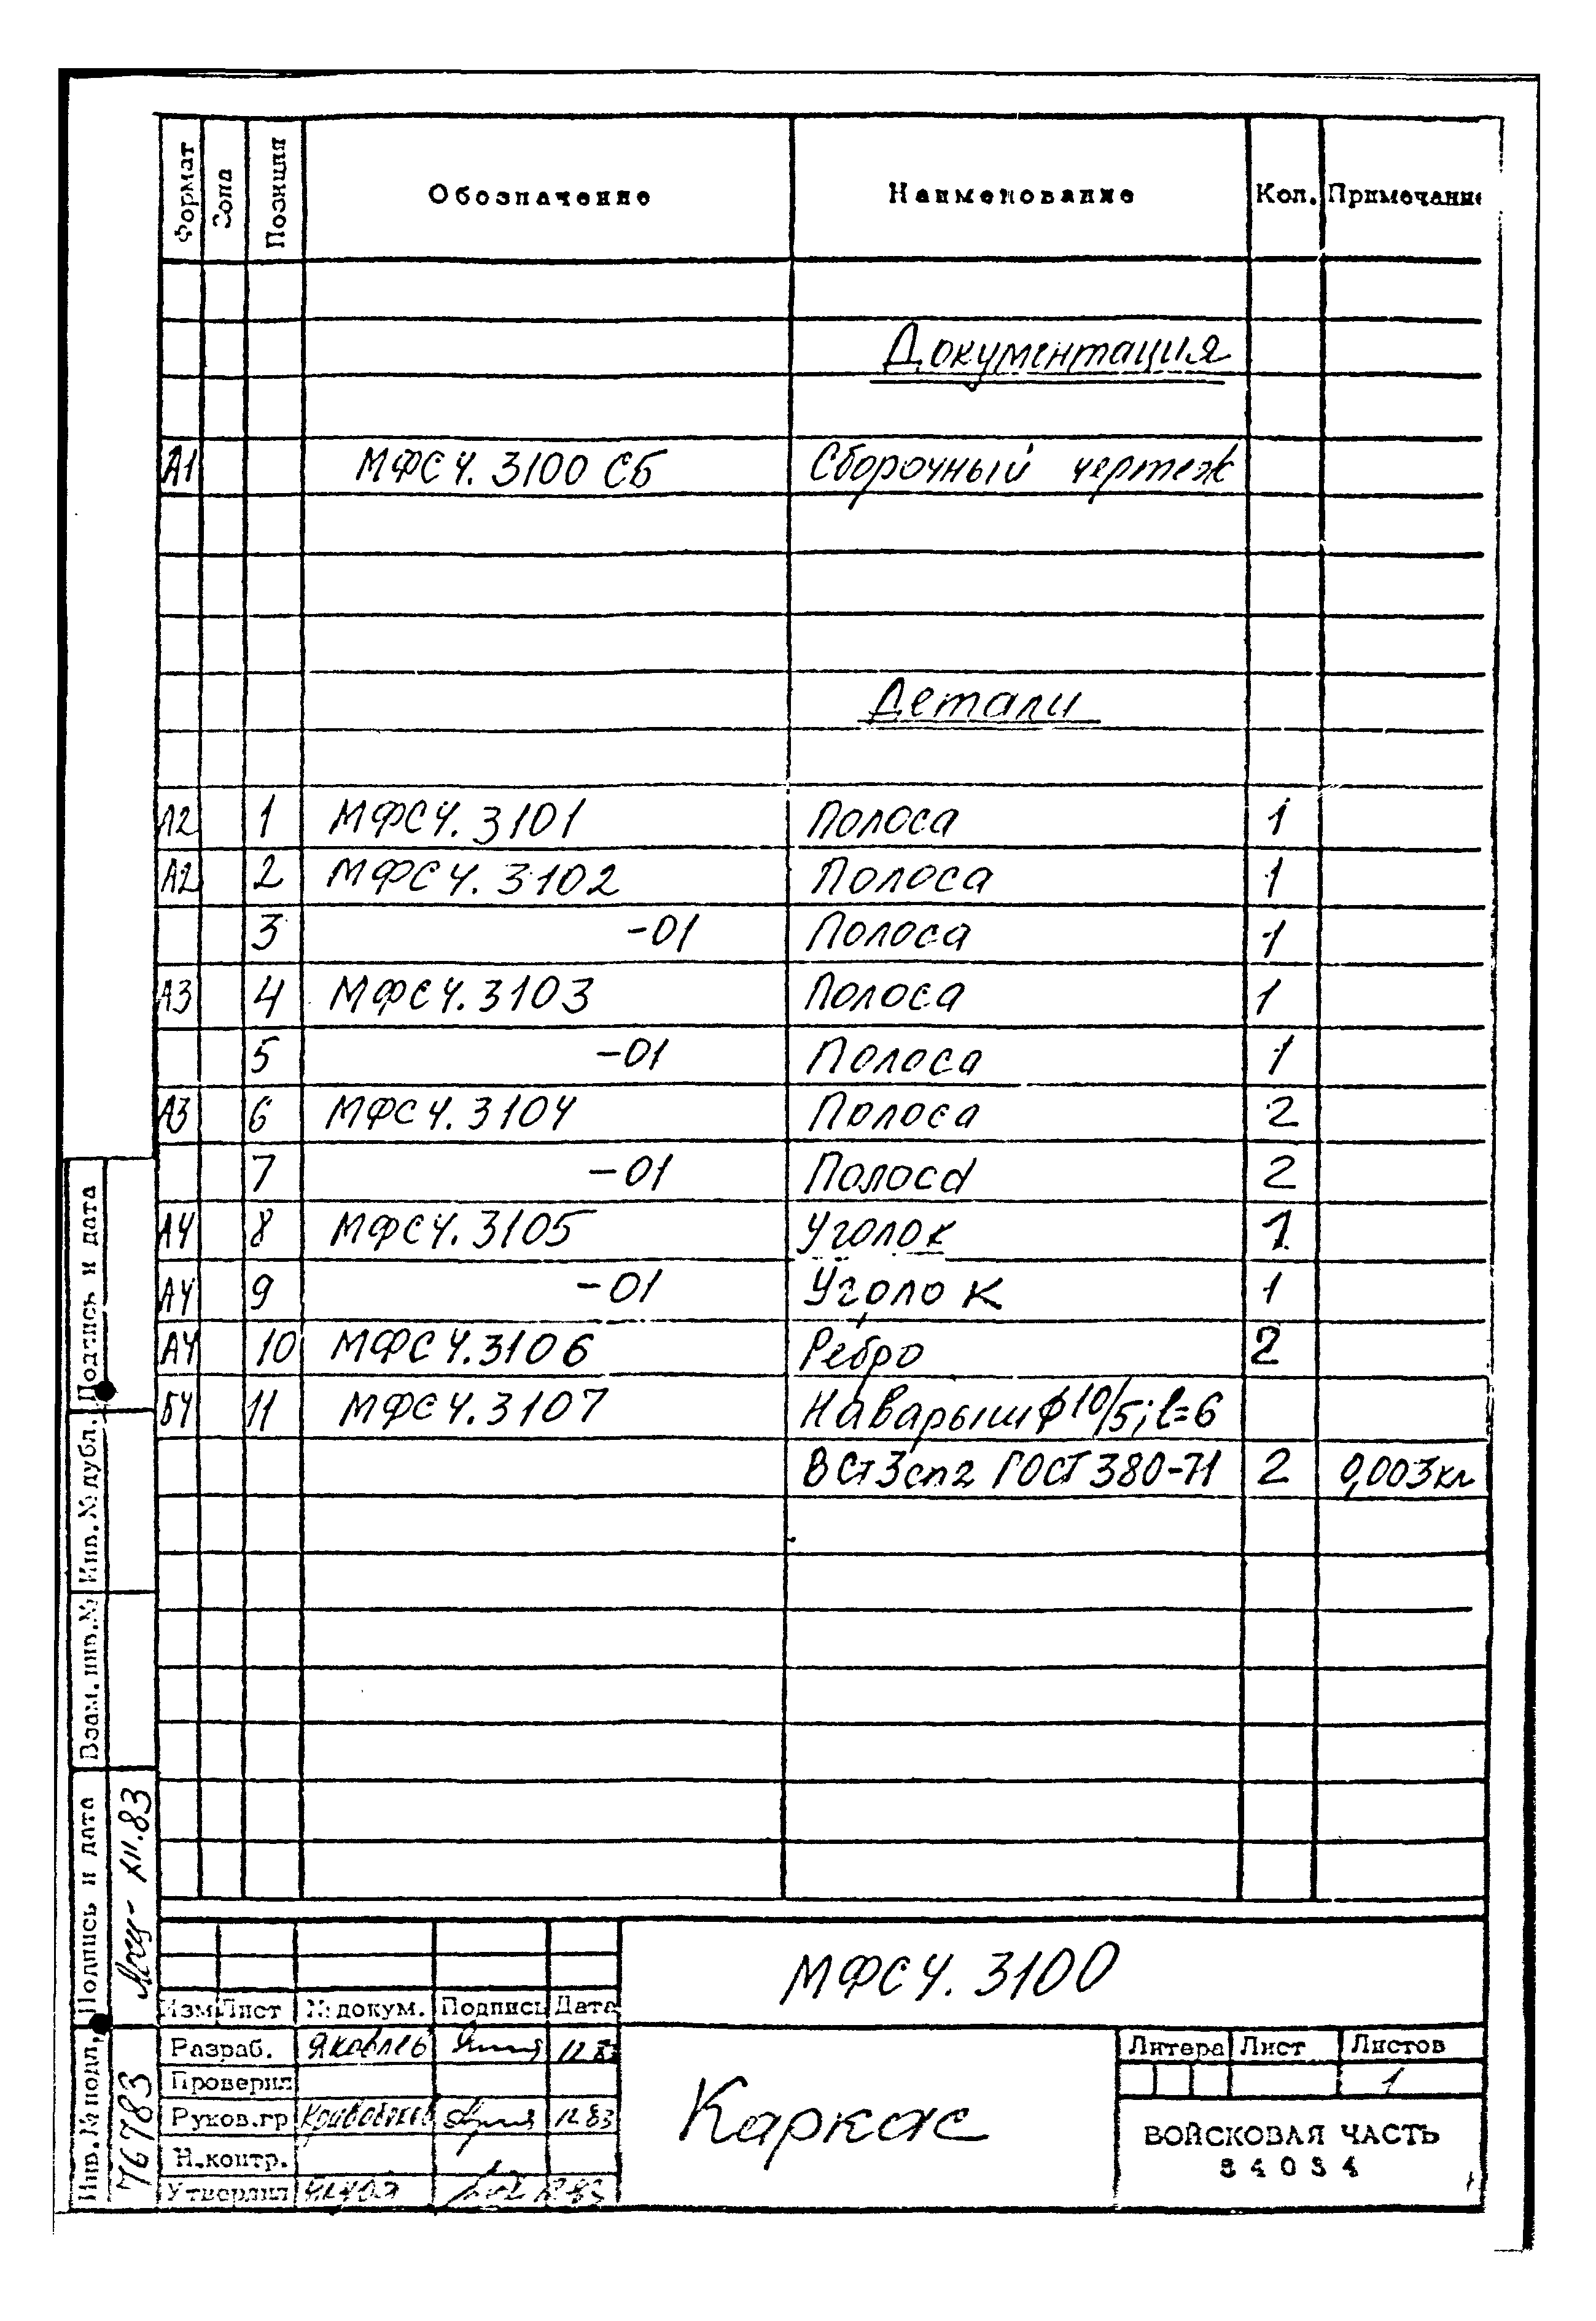 Формат Зона Позиция Обозначение Наименование Кол. Примечание
Документация
А1 МФСЧ.3100 СБ Сборочный чертеж
Детали
А2 1 МФСЧ.3101 Полоса 1
А2 2 МФСЧ.3102 Полоса 1
3 -01 Полоса 1
А3 4 МФСЧ.3103 Полоса 1
5 -01 Полоса 1
А3 6 МФСЧ.3104 Полоса 2
7 -01 Полоса 2
А4 8 МФСЧ.3105 Уголок 1
А4 9 -01 Уголок 1
А4 10 МФСЧ.3106 Ребро 2
БЧ 11 МФСЧ.3107 Наварыш ф10/5; l=6
ВСт3сп2 ГОСТ 380-71 2 0,003кг
Подпись и дата
Инв.№ дубл.
Взам. инв.№
Подпись и дата XII.83
Инв.№ подл. 76783
МФСЧ.3100
Изм Лист № докум. Подпись Дата
Разраб. Яковлев 12.83
Проверил
Руков.гр 12.83
Н.контр.
Утвердил 12.83
Каркас
Литера Лист Листов
1
ВОЙСКОВАЯ ЧАСТЬ
34034